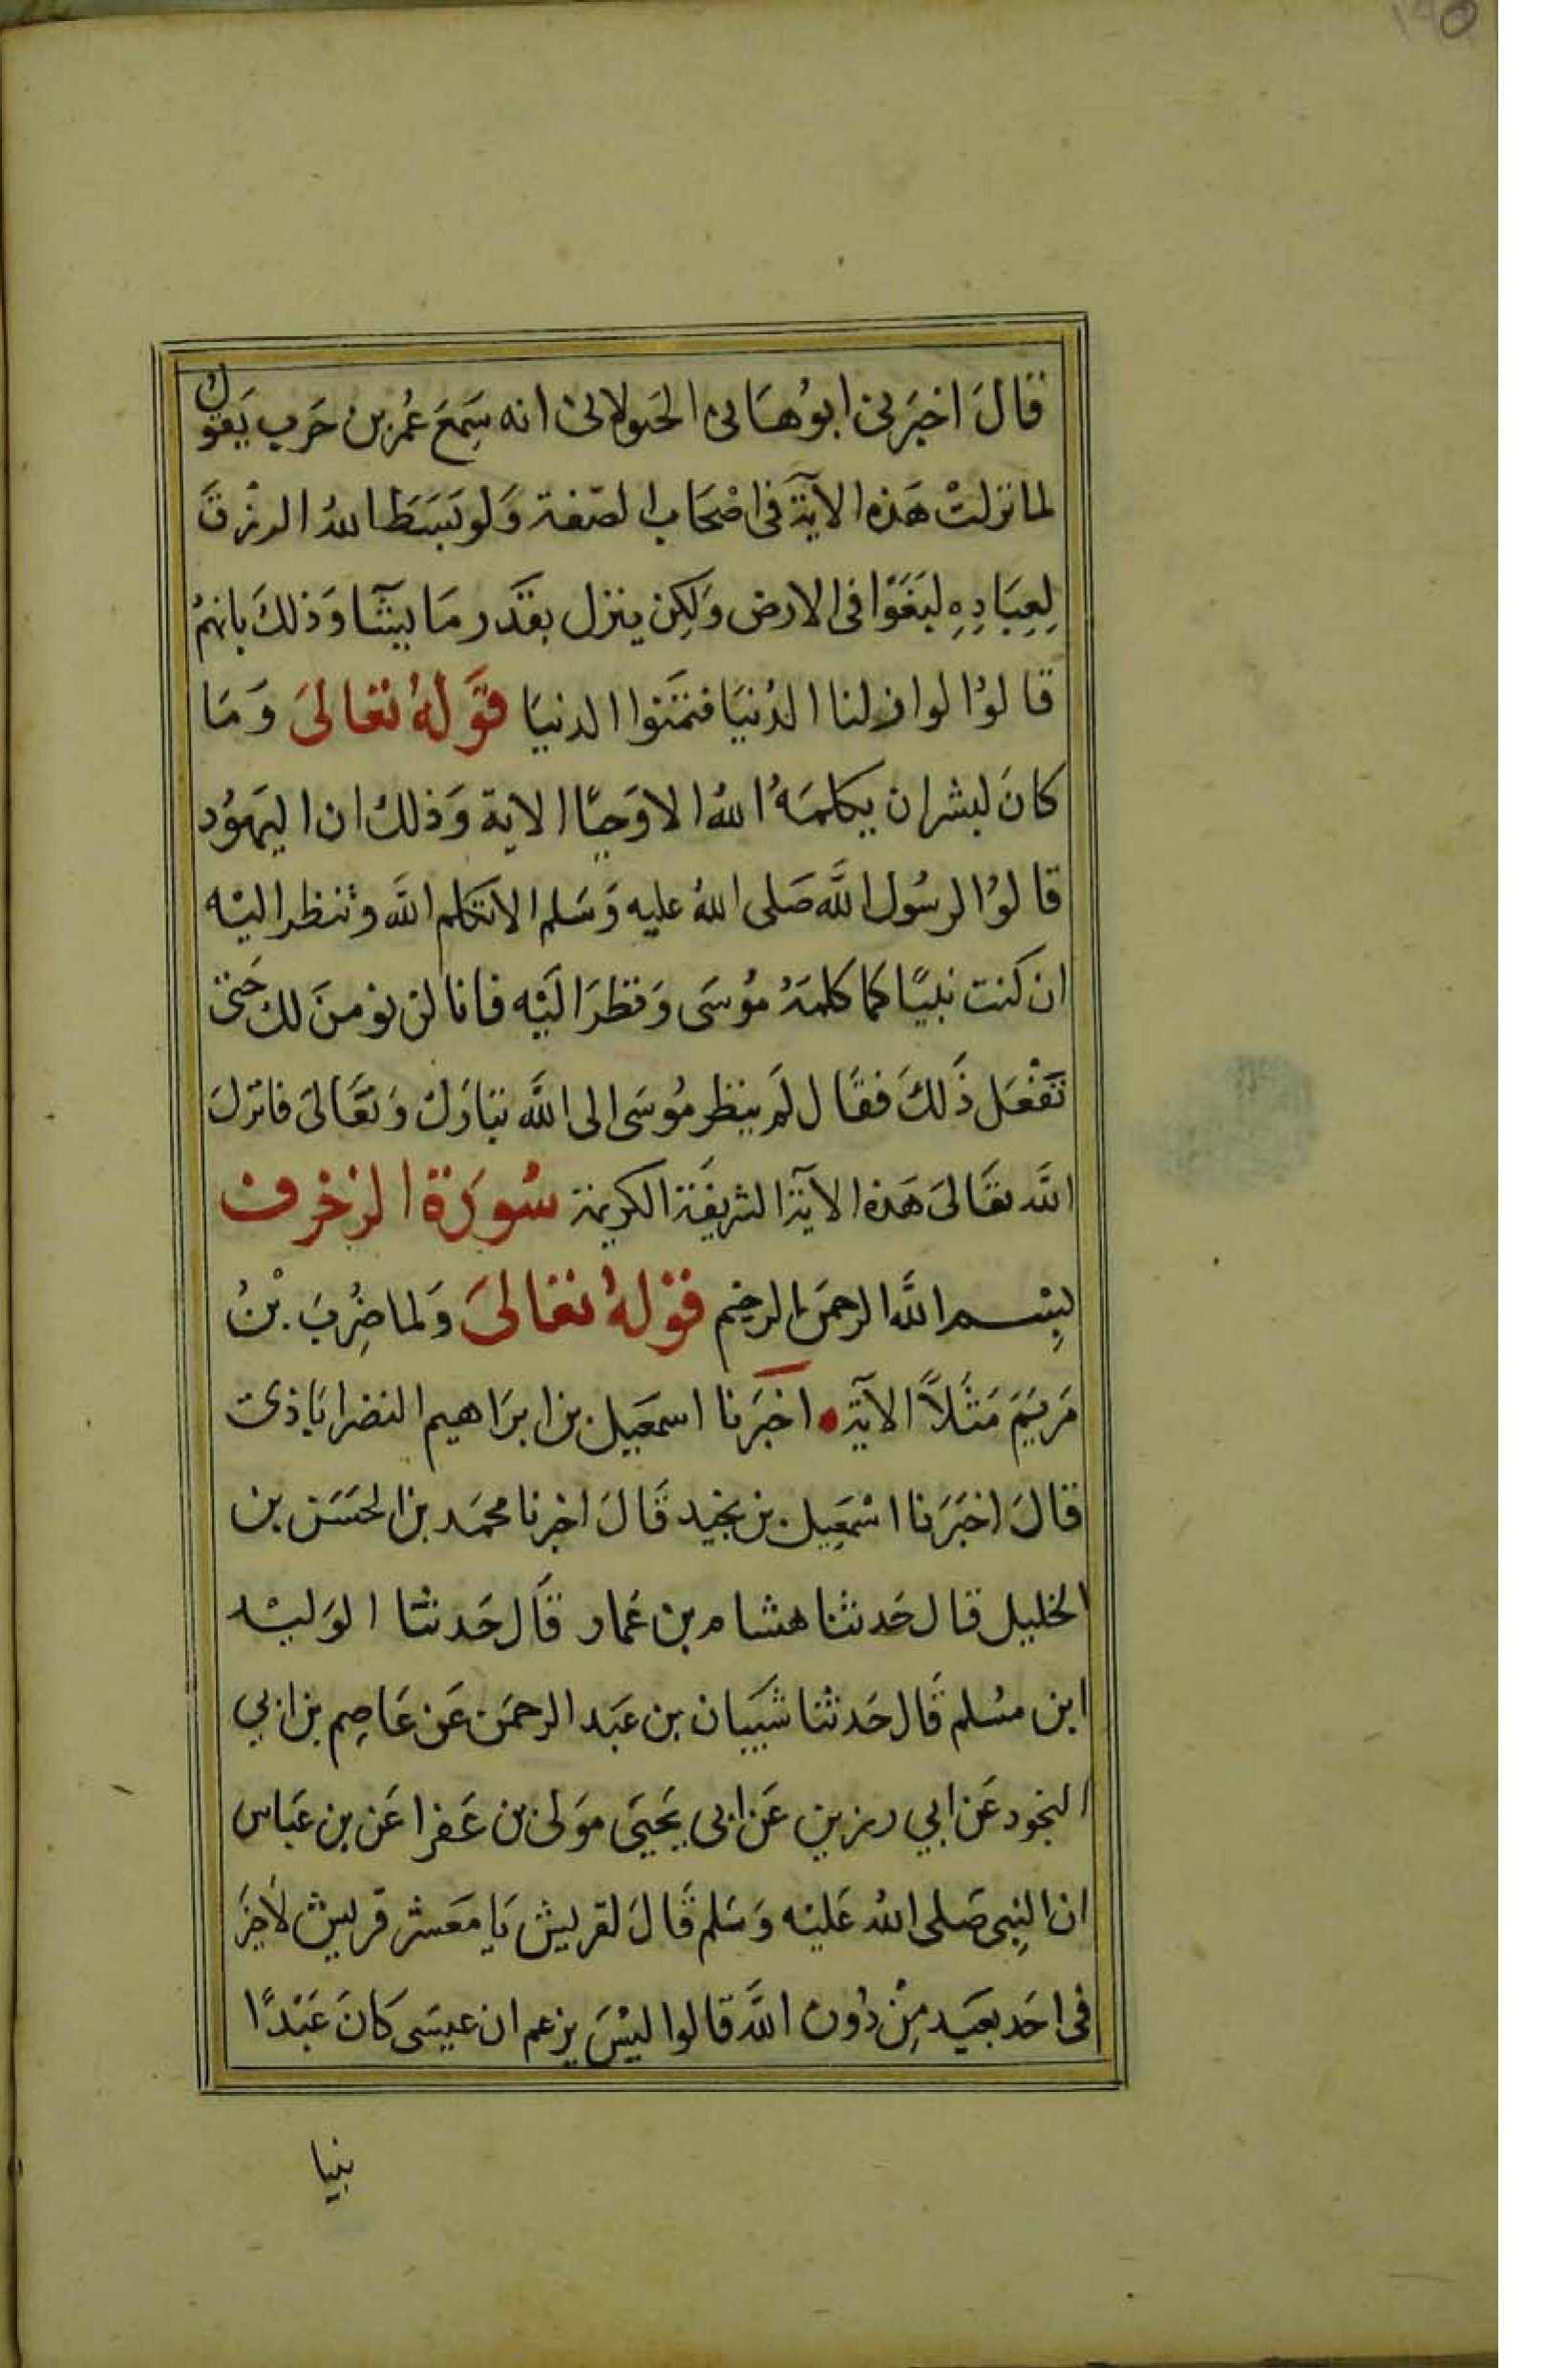 قَالَ اخبَرَنى ابوُهَانى الخولانى انه سَمِعَ عُمَر بن حَرب يَقول
لما نزلتْ هَذه الآية فى اصْحَاب الصّفة وَلو بَسَطَ اللهُ الرزْقَ
لِعِبَادِهِ لبَغَوْا فى الارض وَلكِن ينزل بقَدَر مَا يشآ وَذلكَ بانهمُ
قالوُا لوا ن لنا الدُنيَا فتمَنوا الدنيَا قَوَلهُ تعَالىَ وَمَا
كانَ لبشر ان يكلمَهُ اللهُ الا وَحيًا الاية وَذلك ان اليَهوُد
قالوُا لرسُول اللَّه صَلى اللهُ عليه وَسَلم الا تتكلم اللَّه وتنظر اليْه
ان كنت نبيًا كما كلمَهُ موُسَى وَنظرَ اليَه فانا لن نومنَ لك حَتى
تَفْعَل ذَلكَ فقال لَم ينظر موُسَى الى اللَّه تبَارَك وَتعَالىَ فانزلَ
اللَّه تعَالىَ هَذه الآية الشريفَة الكريمة سُورَة الزخرف
بِسْم اللَّه الرحمَن الرحيم قَوْلهُ تعَالىَ وَلما ضِرُبَ بْنُ
مَريَمَ مَثَلاً الآية اخبَرَنا اسمعَيل بن ابرَاهيم النصرابَاذى
قالَ اخبَرَنا اسْمَعِيل بن نجيد قَالَ اخبرنا محمَد بن الحسَن بن
الخليل قال حَدثنا هشام بن عَمار قَال حَدثنا الوَليْد
ابن مسُلم قَال حَدثنا شَيبَان بن عَبَد الرحمَن عَن عَاصِم بن ابي
النجود عَن ابي رزين عَن ابى يَحيَى مَوَلى بن عَفرا عَن بن عَباس
ان النِبى صَلى اللهُ عَليْه وَسَلم قَالَ لقريش يَا مَعَشر قريش لَا خيَرَ
فى احَد يعَبَد مِنْ دُون اللَّه قالوا ليْسَ يزعم ان عيسَى كَانَ عَبْدًا
نبيا